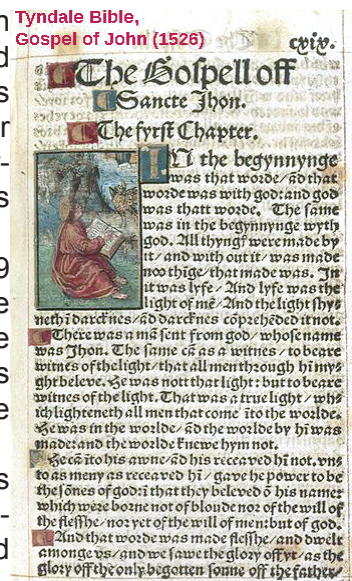 Tyndale Bible,
Gospel of John (1526)
cxix.
The Gospell off
Sancte Jhon.
The fyrst Chapter.
IN the begynnynge
was that worde/ ād that
worde was with god: and god
was thatt worde. The same
was in the begynnynge wyth
god. All thyngs were made by
it/ and with out it/ was made
noo thīge/ that made was. In
it was lyfe/ And lyfe was the
light of mē/ And the light shy=
neth ī darcknes/ ād darcknes cōprehēded it not.
There was a mā sent from god/ whose name
was Jhon. The same cā as a witnes/ to beare
witnes of the light/ that all men through hī mys
ght beleve. He was nott that light: but to beare
witnes of the light. That was a true light/ whi=
ich lighteneth all men that come īto the worlde.
He was in the worlde/ ād the worlde by hī was
made: and the worlde knewe hym not.
He cā īto his awne/ ād his receaved hī not. vns
to as meny as receaved hī/ gave he power to be
the sōnes of god: ī that they beleved ō his name:
which were borne not of bloude nor of the will of
the flesshe/ nor yet of the will of men: but of god.
And that worde was made flesshe/ and dwelt
amonge vs/ and we sawe the glory off yt/ as the
glory off the only begotten sonne off the father/